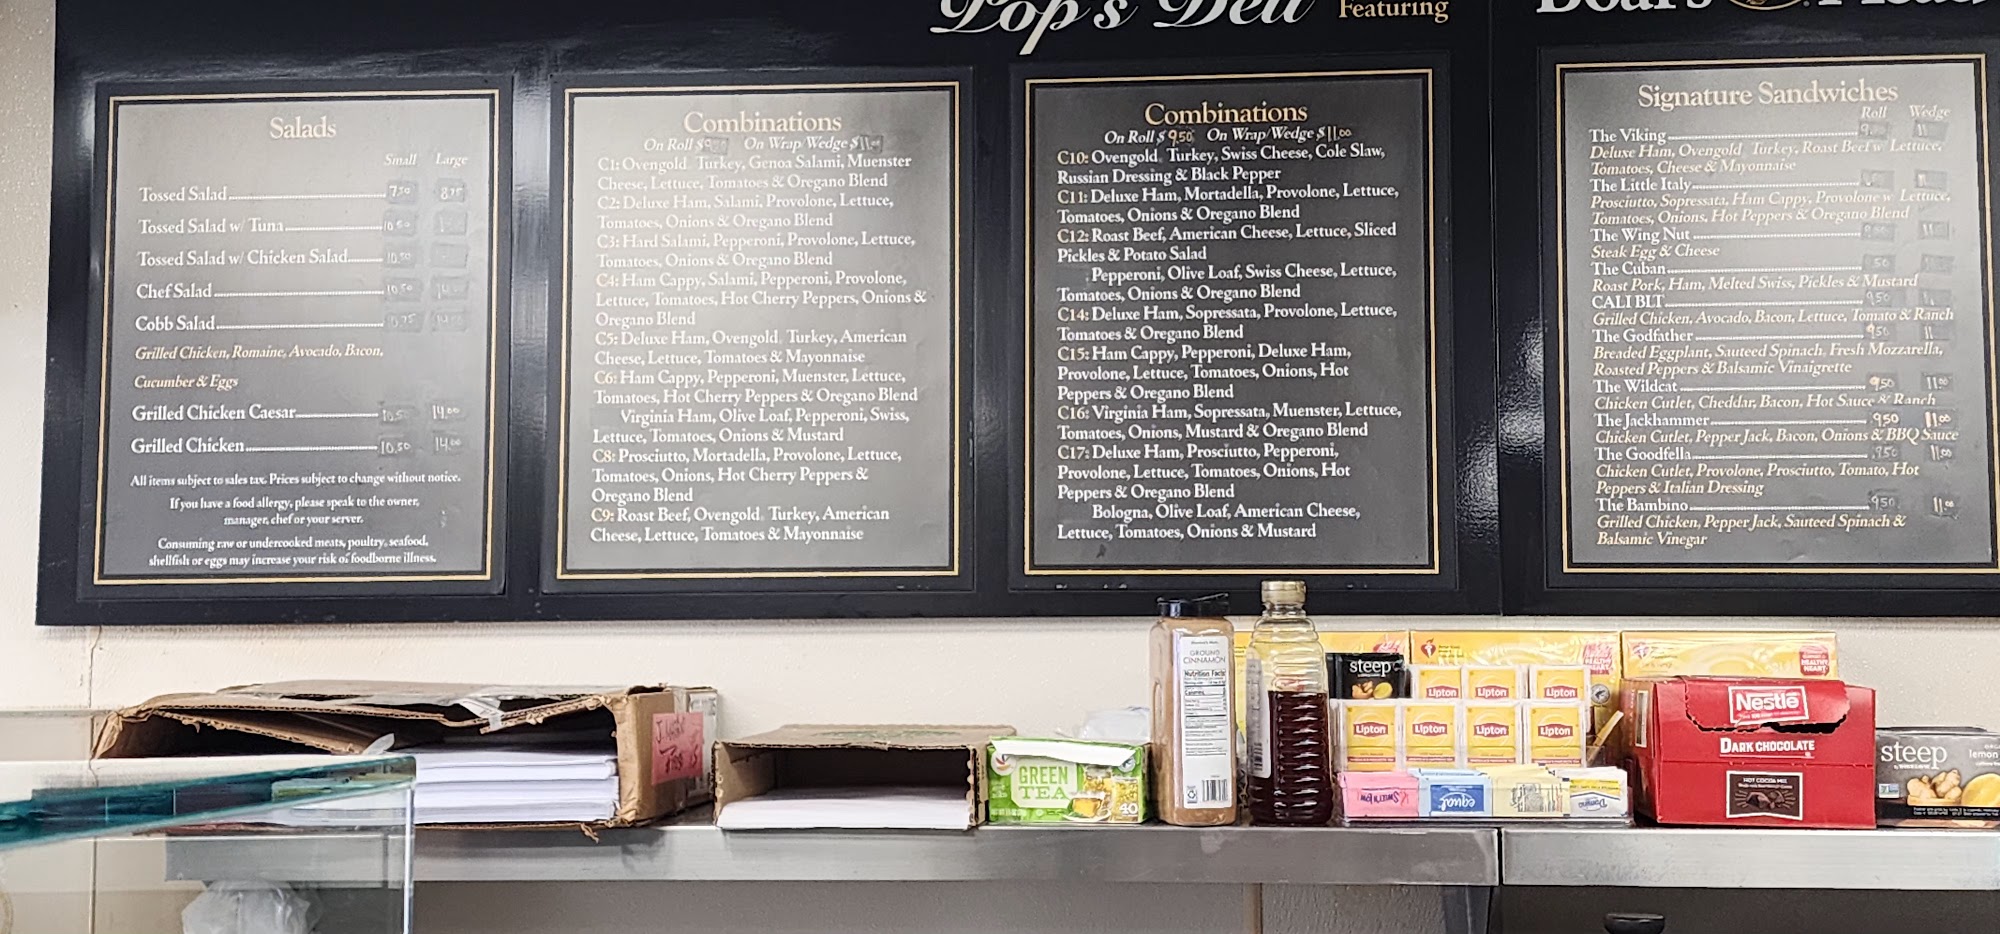 Pop's Deli Featuring
Salads
Small Large
Tossed Salad 7.50 8.75
Tossed Salad w/ Tuna 10.50
Tossed Salad w/ Chicken Salad 10.50
Chef Salad 10.50
Cobb Salad
Grilled Chicken, Romaine, Avocado, Bacon,
Cucumber & Eggs
Grilled Chicken Caesar 10.50 14.00
Grilled Chicken 10.50 14.00
All items subject to sales tax. Prices subject to change without notice.
If you have a food allergy, please speak to the owner,
manager, chef or your server.
Consuming raw or undercooked meats, poultry, seafood,
shellfish or eggs may increase your risk of foodborne illness.
Combinations
On Roll $ On Wrap Wedge $11.00
C1: Ovengold Turkey, Genoa Salami, Muenster
Cheese, Lettuce, Tomatoes & Oregano Blend
C2: Deluxe Ham, Salami, Provolone, Lettuce,
Tomatoes, Onions & Oregano Blend
C3: Hard Salami, Pepperoni, Provolone, Lettuce,
Tomatoes, Onions & Oregano Blend
C4: Ham Cappy, Salami, Pepperoni, Provolone,
Lettuce, Tomatoes, Hot Cherry Peppers, Onions &
Oregano Blend
C5: Deluxe Ham, Ovengold Turkey, American
Cheese, Lettuce, Tomatoes & Mayonnaise
C6: Ham Cappy, Pepperoni, Muenster, Lettuce,
Tomatoes, Hot Cherry Peppers & Oregano Blend
Virginia Ham, Olive Loaf, Pepperoni, Swiss,
Lettuce, Tomatoes, Onions & Mustard
C8: Prosciutto, Mortadella, Provolone, Lettuce,
Tomatoes, Onions, Hot Cherry Peppers &
Oregano Blend
C9: Roast Beef, Ovengold Turkey, American
Cheese, Lettuce, Tomatoes & Mayonnaise
Combinations
On Roll $ 9.50 On Wrap/Wedge $11.00
C10: Ovengold Turkey, Swiss Cheese, Cole Slaw,
Russian Dressing & Black Pepper
C11: Deluxe Ham, Mortadella, Provolone, Lettuce,
Tomatoes, Onions & Oregano Blend
C12: Roast Beef, American Cheese, Lettuce, Sliced
Pickles & Potato Salad
Pepperoni, Olive Loaf, Swiss Cheese, Lettuce,
Tomatoes, Onions & Oregano Blend
C14: Deluxe Ham, Sopressata, Provolone, Lettuce,
Tomatoes & Oregano Blend
C15: Ham Cappy, Pepperoni, Deluxe Ham,
Provolone, Lettuce, Tomatoes, Onions, Hot
Peppers & Oregano Blend
C16: Virginia Ham, Sopressata, Muenster, Lettuce,
Tomatoes, Onions, Mustard & Oregano Blend
C17: Deluxe Ham, Prosciutto, Pepperoni,
Provolone, Lettuce, Tomatoes, Onions, Hot
Peppers & Oregano Blend
Bologna, Olive Loaf, American Cheese,
Lettuce, Tomatoes, Onions & Mustard
Signature Sandwiches
Roll Wedge
The Viking
Deluxe Ham, Ovengold Turkey, Roast Beef w/ Lettuce,
Tomatoes, Cheese & Mayonnaise
The Little Italy
Prosciutto, Sopressata, Ham Cappy, Provolone w/ Lettuce,
Tomatoes, Onions, Hot Peppers & Oregano Blend
The Wing Nut
Steak Egg & Cheese
The Cuban
Roast Pork, Ham, Melted Swiss, Pickles & Mustard
CALI BLT 9.50
Grilled Chicken, Avocado, Bacon, Lettuce, Tomato & Ranch
The Godfather 9.50
Breaded Eggplant, Sauteed Spinach, Fresh Mozzarella,
Roasted Peppers & Balsamic Vinaigrette
The Wildcat 9.50 11.00
Chicken Cutlet, Cheddar, Bacon, Hot Sauce & Ranch
The Jackhammer 9.50 11.00
Chicken Cutlet, Pepper Jack, Bacon, Onions & BBQ Sauce
The Goodfella 9.50 11.00
Chicken Cutlet, Provolone, Prosciutto, Tomato, Hot
Peppers & Italian Dressing
The Bambino 9.50 11.00
Grilled Chicken, Pepper Jack, Sauteed Spinach &
Balsamic Vinegar
GREEN
TEA
40
GROUND
CINNAMON
Nutrition Facts
steep
Lipton Lipton Lipton
Lipton Lipton Lipton Lipton
Sweet'N Low
equal
Domino
HEALTHY
HEART
Nestlé
DARK CHOCOLATE
HOT COCOA MIX
steep
lemon